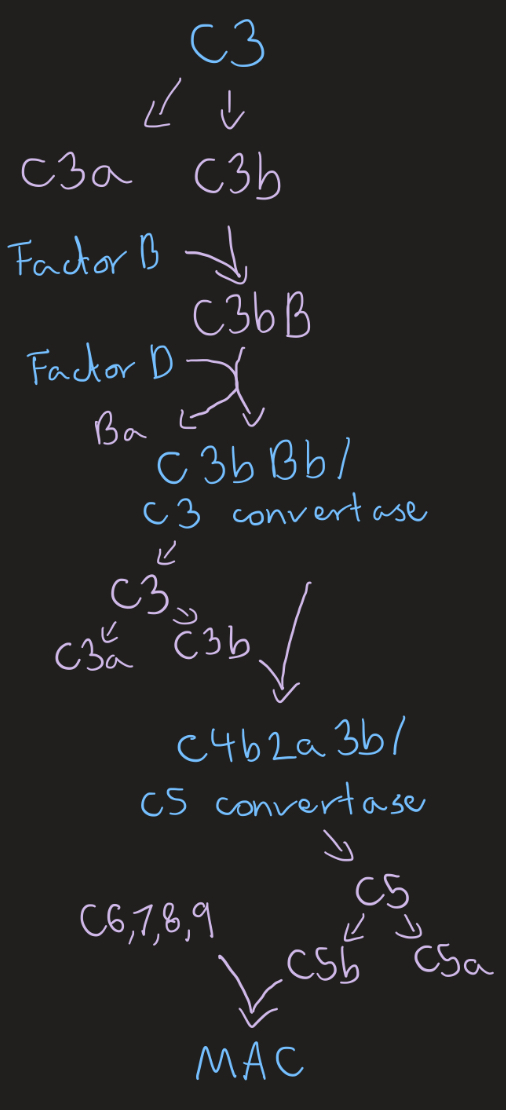 C3
C3a C3b
Factor B
C3bB
Factor D
Ba
C3bBb/
C3 convertase
C3
C3a C3b
C4b2a3b/
C5 convertase
C5
C6,7,8,9
C5b C5a
MAC